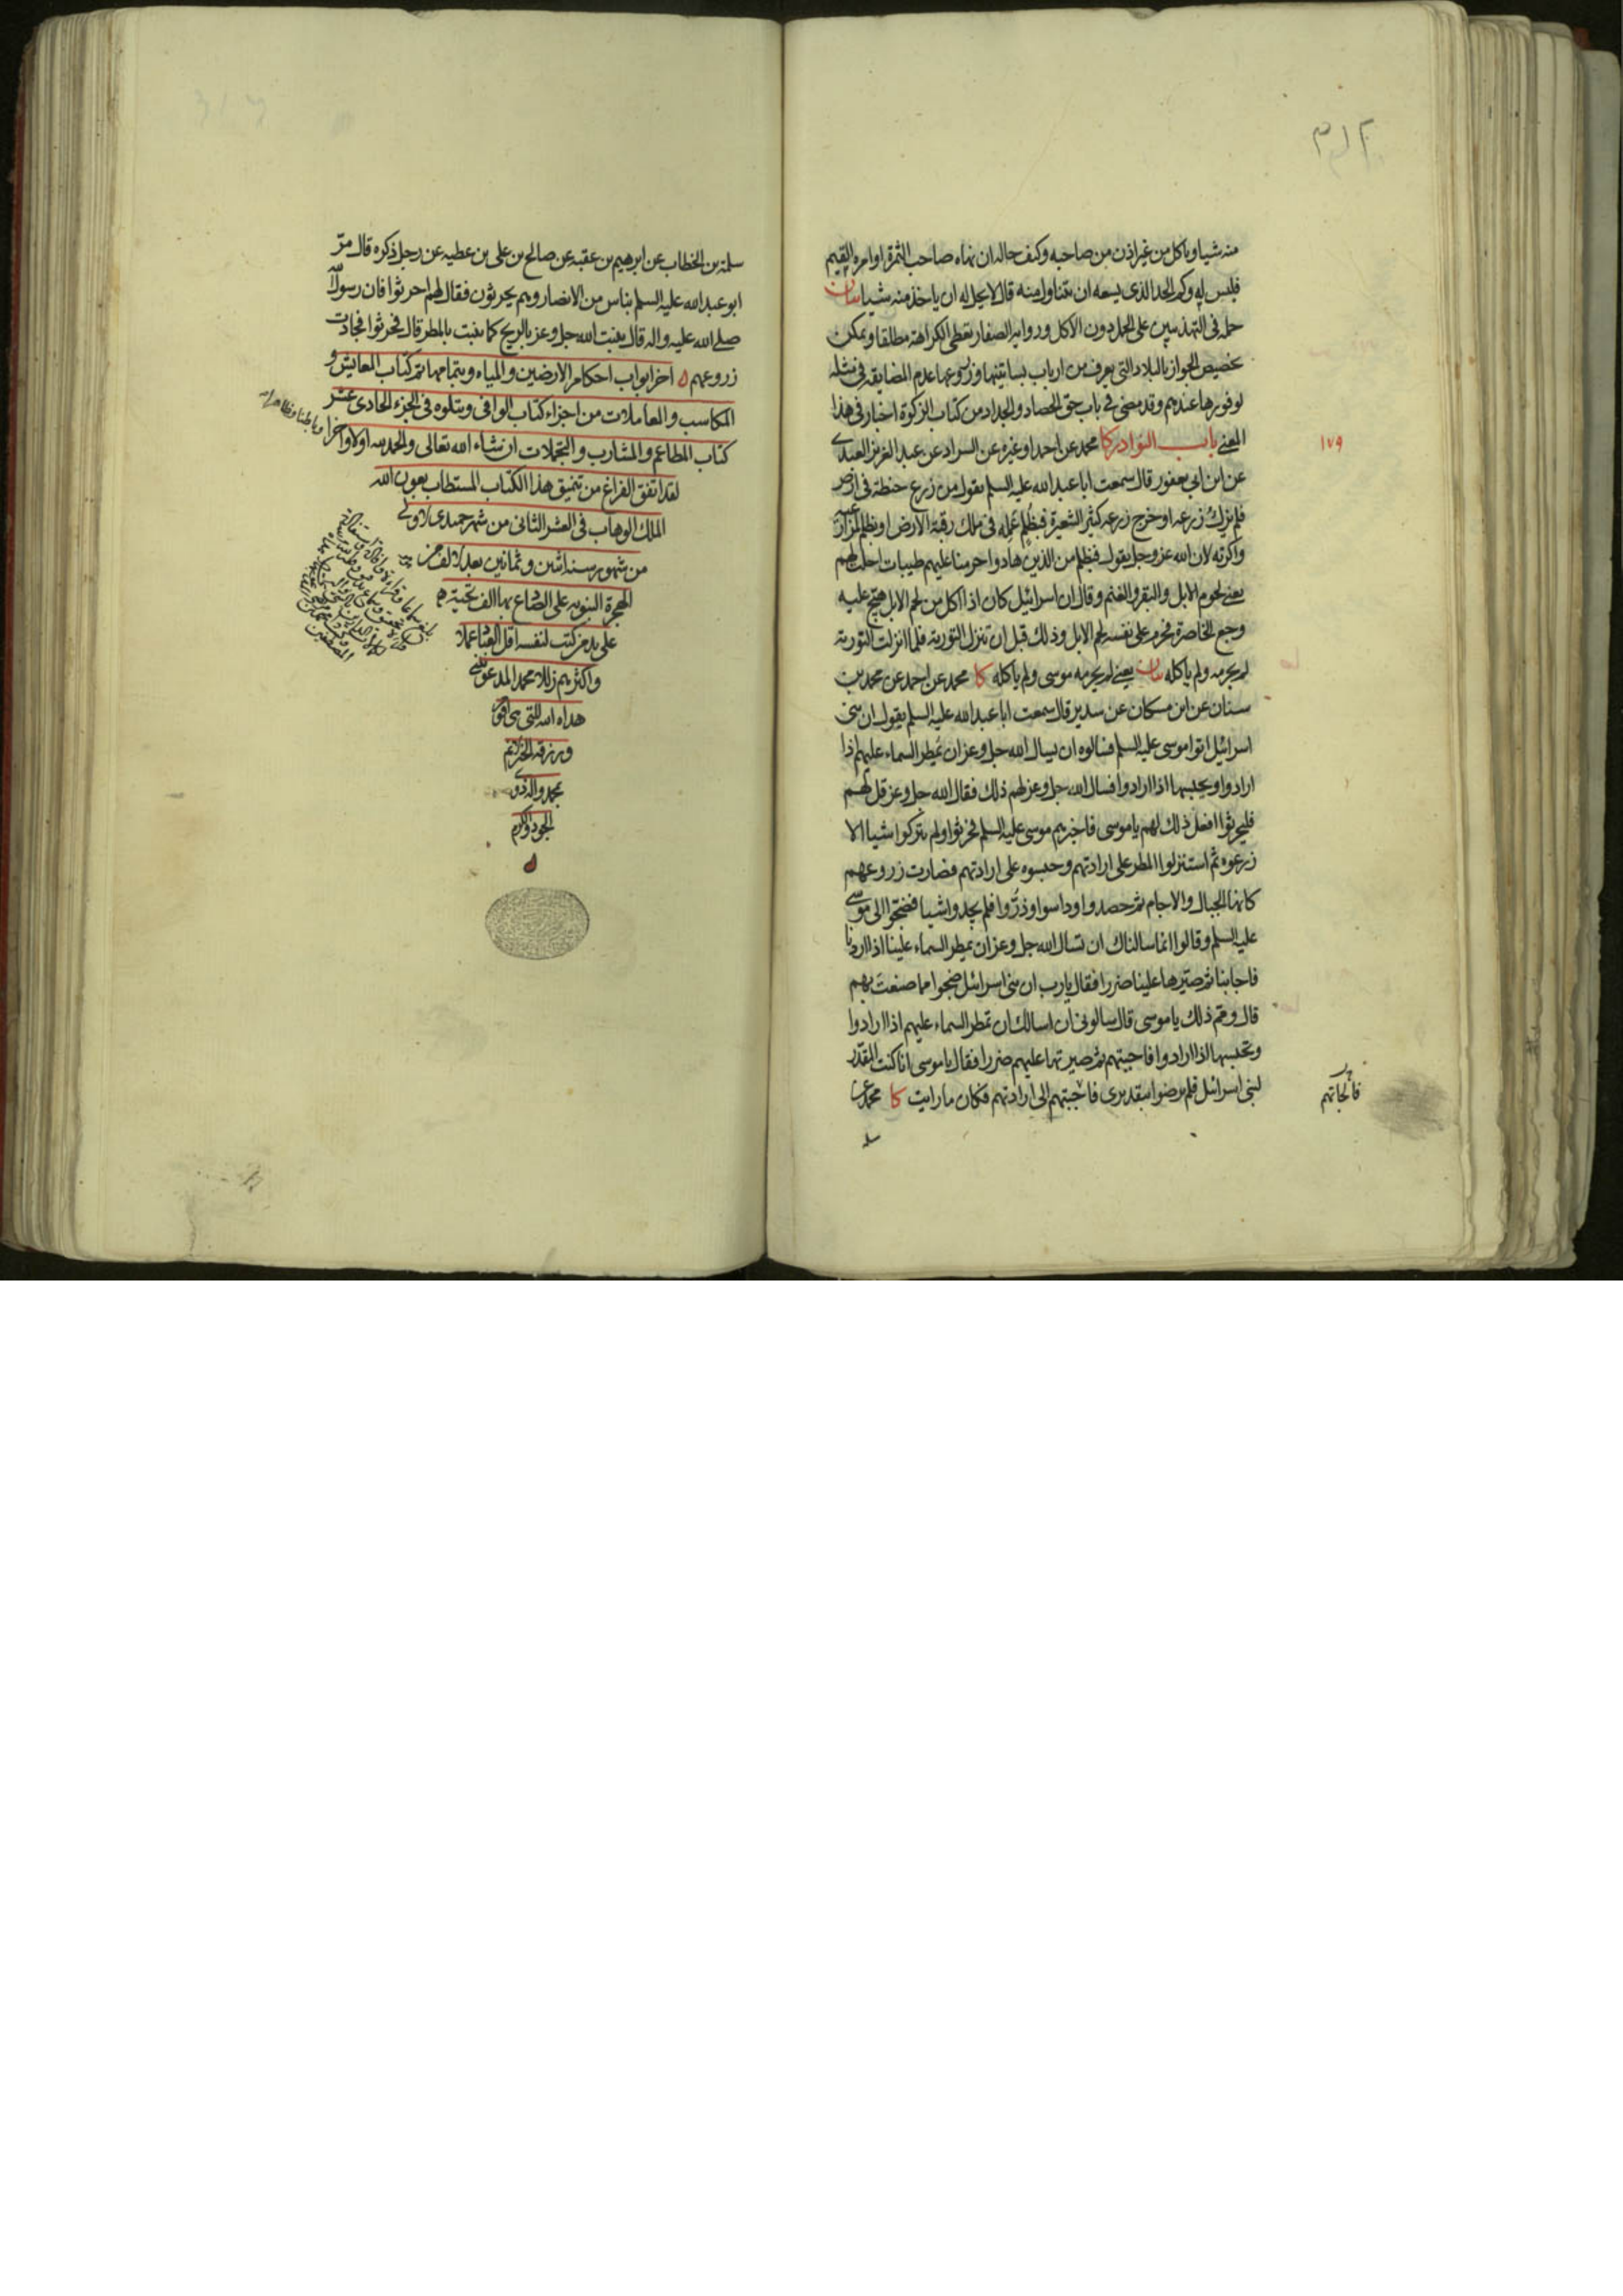 منه شيا وياكل من غير اذن من صاحبه وكيف حاله ان نهاه صاحب الثمرة او امره القيم
فليس له وكم الحد الذى يسعه ان يتناول منه قال لا يحل له ان ياخذ منه شيا بيان
حمله فى التهذيبين على الحمل دون الاكل ورواية الصفار تعطى الكراهة مطلقا ويمكن
تخصيص الجواز بالبلاد التى يعرف من ارباب بساتينها وزروعها عدم المضايقه فى مثله
لوفورها عندهم وقد مضى فى باب حق الحصاد والجداد من كتاب الزكوة اخبار فى هذا
المعنى باب النوادر كا محمد عن احمد او غيره عن السراد عن عبد العزيز العبدى
عن ابن ابى يعفور قال سمعت ابا عبدالله عليه السلم يقول من زرع حنطة فى ارض
فلم يزك زرعه او خرج زرعه كثير الشعير فبظلم عمله فى ملك رقبة الارض او بظلم لمزارعيه
واكرته لان الله عز وجل يقول فبظلم من الذين هادوا حرمنا عليهم طيبات احلت لهم
يعنى لحوم الابل والبقر والغنم وقال ان اسرائيل كان اذا اكل من لحم الابل هيج عليه
وجع الخاصرة فحرم على نفسه لحم الابل وذلك قبل ان تنزل التورية فلما انزلت التورية
لم يحرمه ولم ياكله بيان يعنى لم يحرمه موسى ولم ياكله كا محمد عن احمد عن محمد بن
سنان عن ابن مسكان عن سدير قال سمعت ابا عبدالله عليه السلم يقول ان بنى
اسرائيل اتوا موسى عليه السلم فسالوه ان يسال الله جل وعز ان يمطر السماء عليهم اذا
ارادوا ويحبسها اذا ارادوا فسال الله جل وعز لهم ذلك فقال الله جل وعز قل لهم
فليحرثوا افعل ذلك لهم يا موسى فاخبرهم موسى عليه السلم فحرثوا ولم يتركوا شيا الا
زرعوه ثم استنزلوا المطر على ارادتهم وحبسوه على ارادتهم فصارت زروعهم
كانها الجبال والاجام ثم حصدوا وداسوا وذروا فلم يجدوا شيا فضجوا الى موسى
عليه السلم وقالوا انما سالناك ان تسال الله جل وعز ان يمطر السماء علينا اذا اردنا
فاجابنا ثم صيرها علينا ضررا فقال يارب ان بنى اسرائيل ضجوا مما صنعت بهم
قال ومم ذلك يا موسى قال سالونى ان اسالك ان تمطر السماء عليهم اذا ارادوا
وتحبسها اذا ارادوا فاجبتهم ثم صيرتها عليهم ضررا فقال يا موسى انا كنت المقدر
لبنى اسرائيل فلم يرضوا بتقديرى فاجبتهم الى ارادتهم فكان ما رايت كا محمد عن
١٧٩
سلمة بن الخطاب عن ابرهيم بن عقبه عن صالح بن على بن عطيه عن رجل ذكره قال مر
ابو عبدالله عليه السلم بناس من الانصار وهم يحرثون فقال لهم احرثوا فان رسول الله
صلى الله عليه واله قال ينبت الله جل وعز بالريح كما ينبت بالمطر قال فحرثوا فجادت
زروعهم اخر ابواب احكام الارضين والمياه وبتمامها تم كتاب المعايش و
المكاسب والمعاملات من اجزاء كتاب الوافى ويتلوه فى الجزء الحادى عشر
كتاب المطاعم والمشارب والتجملات ان شاء الله تعالى والحمد لله اولا واخرا وباطنا وظاهرا
لقد اتفق الفراغ من تنميق هذا الكتاب المستطاب بعون الله
الملك الوهاب فى العشر الثانى من شهر جميدى الاولى
من شهور سنه اثنين وثمانين بعد الالف من
الهجرة النبويه على الصادع بها الف تحية
على يد من كتب لنفسه اقل العباد عملا
واكثرهم زللا محمد المدعو
هداه الله للتى هى اقوم
ورزقه الخير الاتم
بمحمد واله ذوى
الجود والكرم